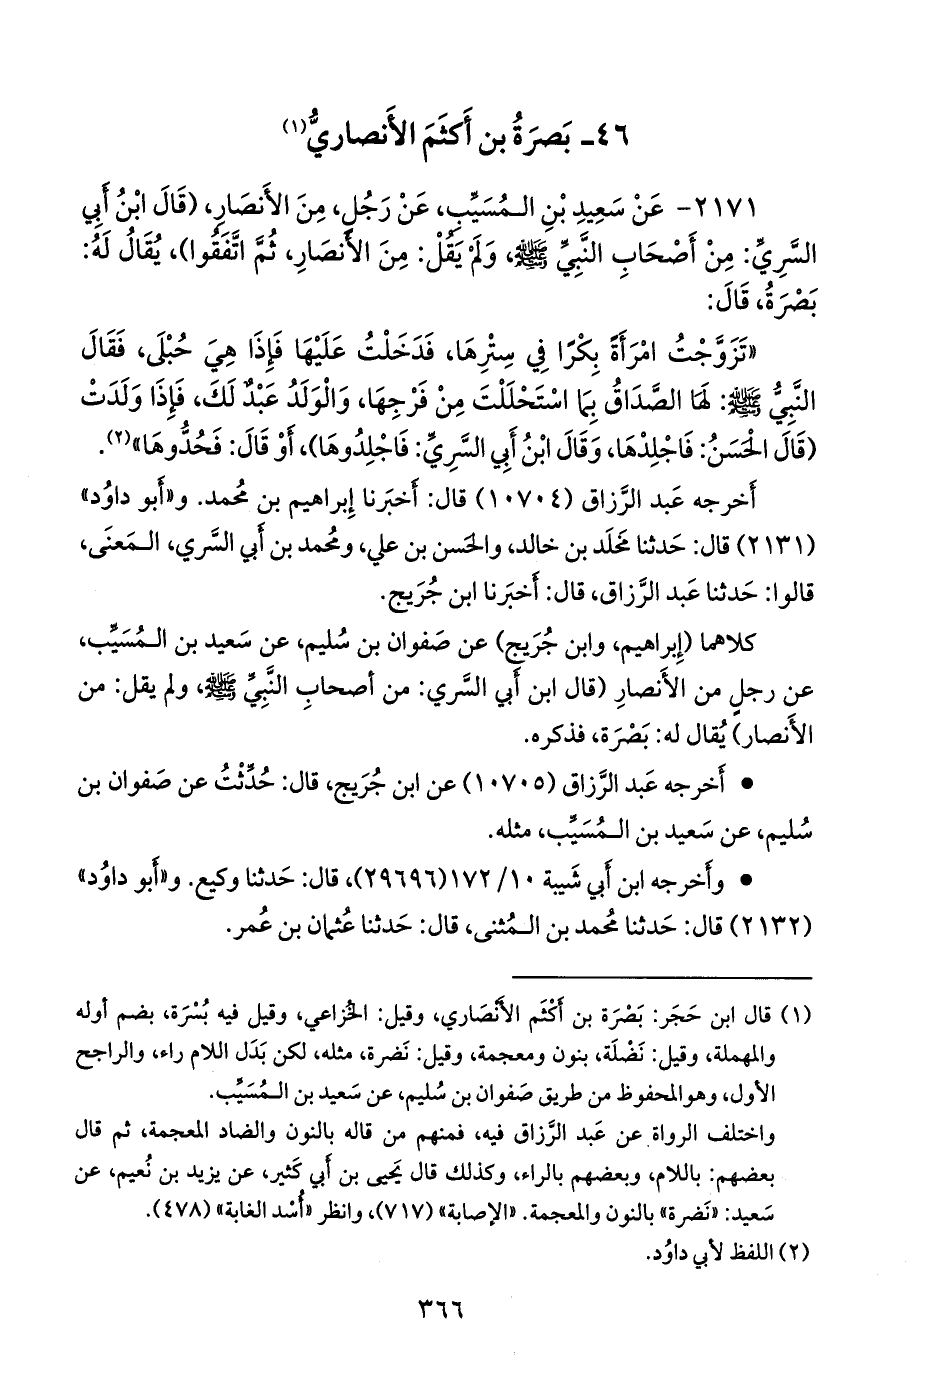 ٤٦- بَصرَةُ بن أَكثَمَ الأَنصاريُّ(١)
٢١٧١- عَنْ سَعِيدِ بْنِ الـمُسَيِّبِ، عَنْ رَجُلٍ، مِنَ الأَنصَارِ، (قَالَ ابْنُ أَبِي
السَّرِيِّ: مِنْ أَصْحَابِ النَّبِيِّ ﷺ، وَلَمْ يَقُلْ: مِنَ الأَنْصَارِ، ثُمَّ اتَّفَقُوا)، يُقَالُ لَهُ:
بَصْرَةُ، قَالَ:
«تَزَوَّجْتُ امْرَأَةً بِكْرًا فِي سِتْرِهَا، فَدَخَلْتُ عَلَيْهَا فَإِذَا هِيَ حُبْلَى، فَقَالَ
النَّبِيُّ ﷺ: لَهَا الصَّدَاقُ بِمَا اسْتَحْلَلْتَ مِنْ فَرْجِهَا، وَالْوَلَدُ عَبْدٌ لَكَ، فَإِذَا وَلَدَتْ
(قَالَ الْحَسَنُ: فَاجْلِدْهَا، وَقَالَ ابْنُ أَبِي السَّرِيِّ: فَاجْلِدُوهَا)، أَوْ قَالَ: فَحُدُّوهَا»(٢).
أَخرجه عَبد الرَّزاق (١٠٧٠٤) قال: أَخبَرنا إِبراهيم بن مُحمد. و«أَبو داوُد»
(٢١٣١) قال: حَدثنا مَخلَد بن خالد، والحَسن بن علي، ومُحمد بن أَبي السَّري، الـمَعنَى،
قالوا: حَدثنا عَبد الرَّزاق، قال: أَخبَرنا ابن جُرَيج.
كلاهما (إِبراهيم، وابن جُرَيج) عن صَفوان بن سُليم، عن سَعيد بن الـمُسَيِّب،
عن رجلٍ من الأَنصارِ (قال ابن أَبي السَّري: من أَصحابِ النَّبيِّ ﷺ، ولم يقل: من
الأَنصار) يُقال له: بَصْرَة، فذكره.
• أَخرجه عَبد الرَّزاق (١٠٧٠٥) عن ابن جُرَيج، قال: حُدِّثْتُ عن صَفوان بن
سُليم، عن سَعيد بن الـمُسَيِّب، مثله.
• وأَخرجه ابن أَبي شَيبة ١٠/ ١٧٢(٢٩٦٩٦)، قال: حَدثنا وكيع. و«أَبو داوُد»
(٢١٣٢) قال: حَدثنا مُحمد بن الـمُثنى، قال: حَدثنا عُثمان بن عُمر.
(١) قال ابن حَجَر: بَصْرَة بن أَكْثَم الأَنْصَاري، وقيل: الخُزاعي، وقيل فيه بُسْرَة، بضم أوله
والمهملة، وقيل: نَضْلَة، بنون ومعجمة، وقيل: نَضرة، مثله، لكن بَدَل اللام راء، والراجح
الأول، وهوالمحفوظ من طريق صَفوان بن سُليم، عن سَعيد بن الـمُسَيِّب.
واختلف الرواة عن عَبد الرَّزاق فيه، فمنهم من قاله بالنون والضاد المعجمة، ثم قال
بعضهم: باللام، وبعضهم بالراء، وكذلك قال يَحيى بن أَبي كَثير، عن يزيد بن نُعيم، عن
سَعيد: «نَضرة» بالنون والمعجمة. «الإصابة» (٧١٧)، وانظر «أُسْد الغابة» (٤٧٨).
(٢) اللفظ لأبي داوُد.
٣٦٦